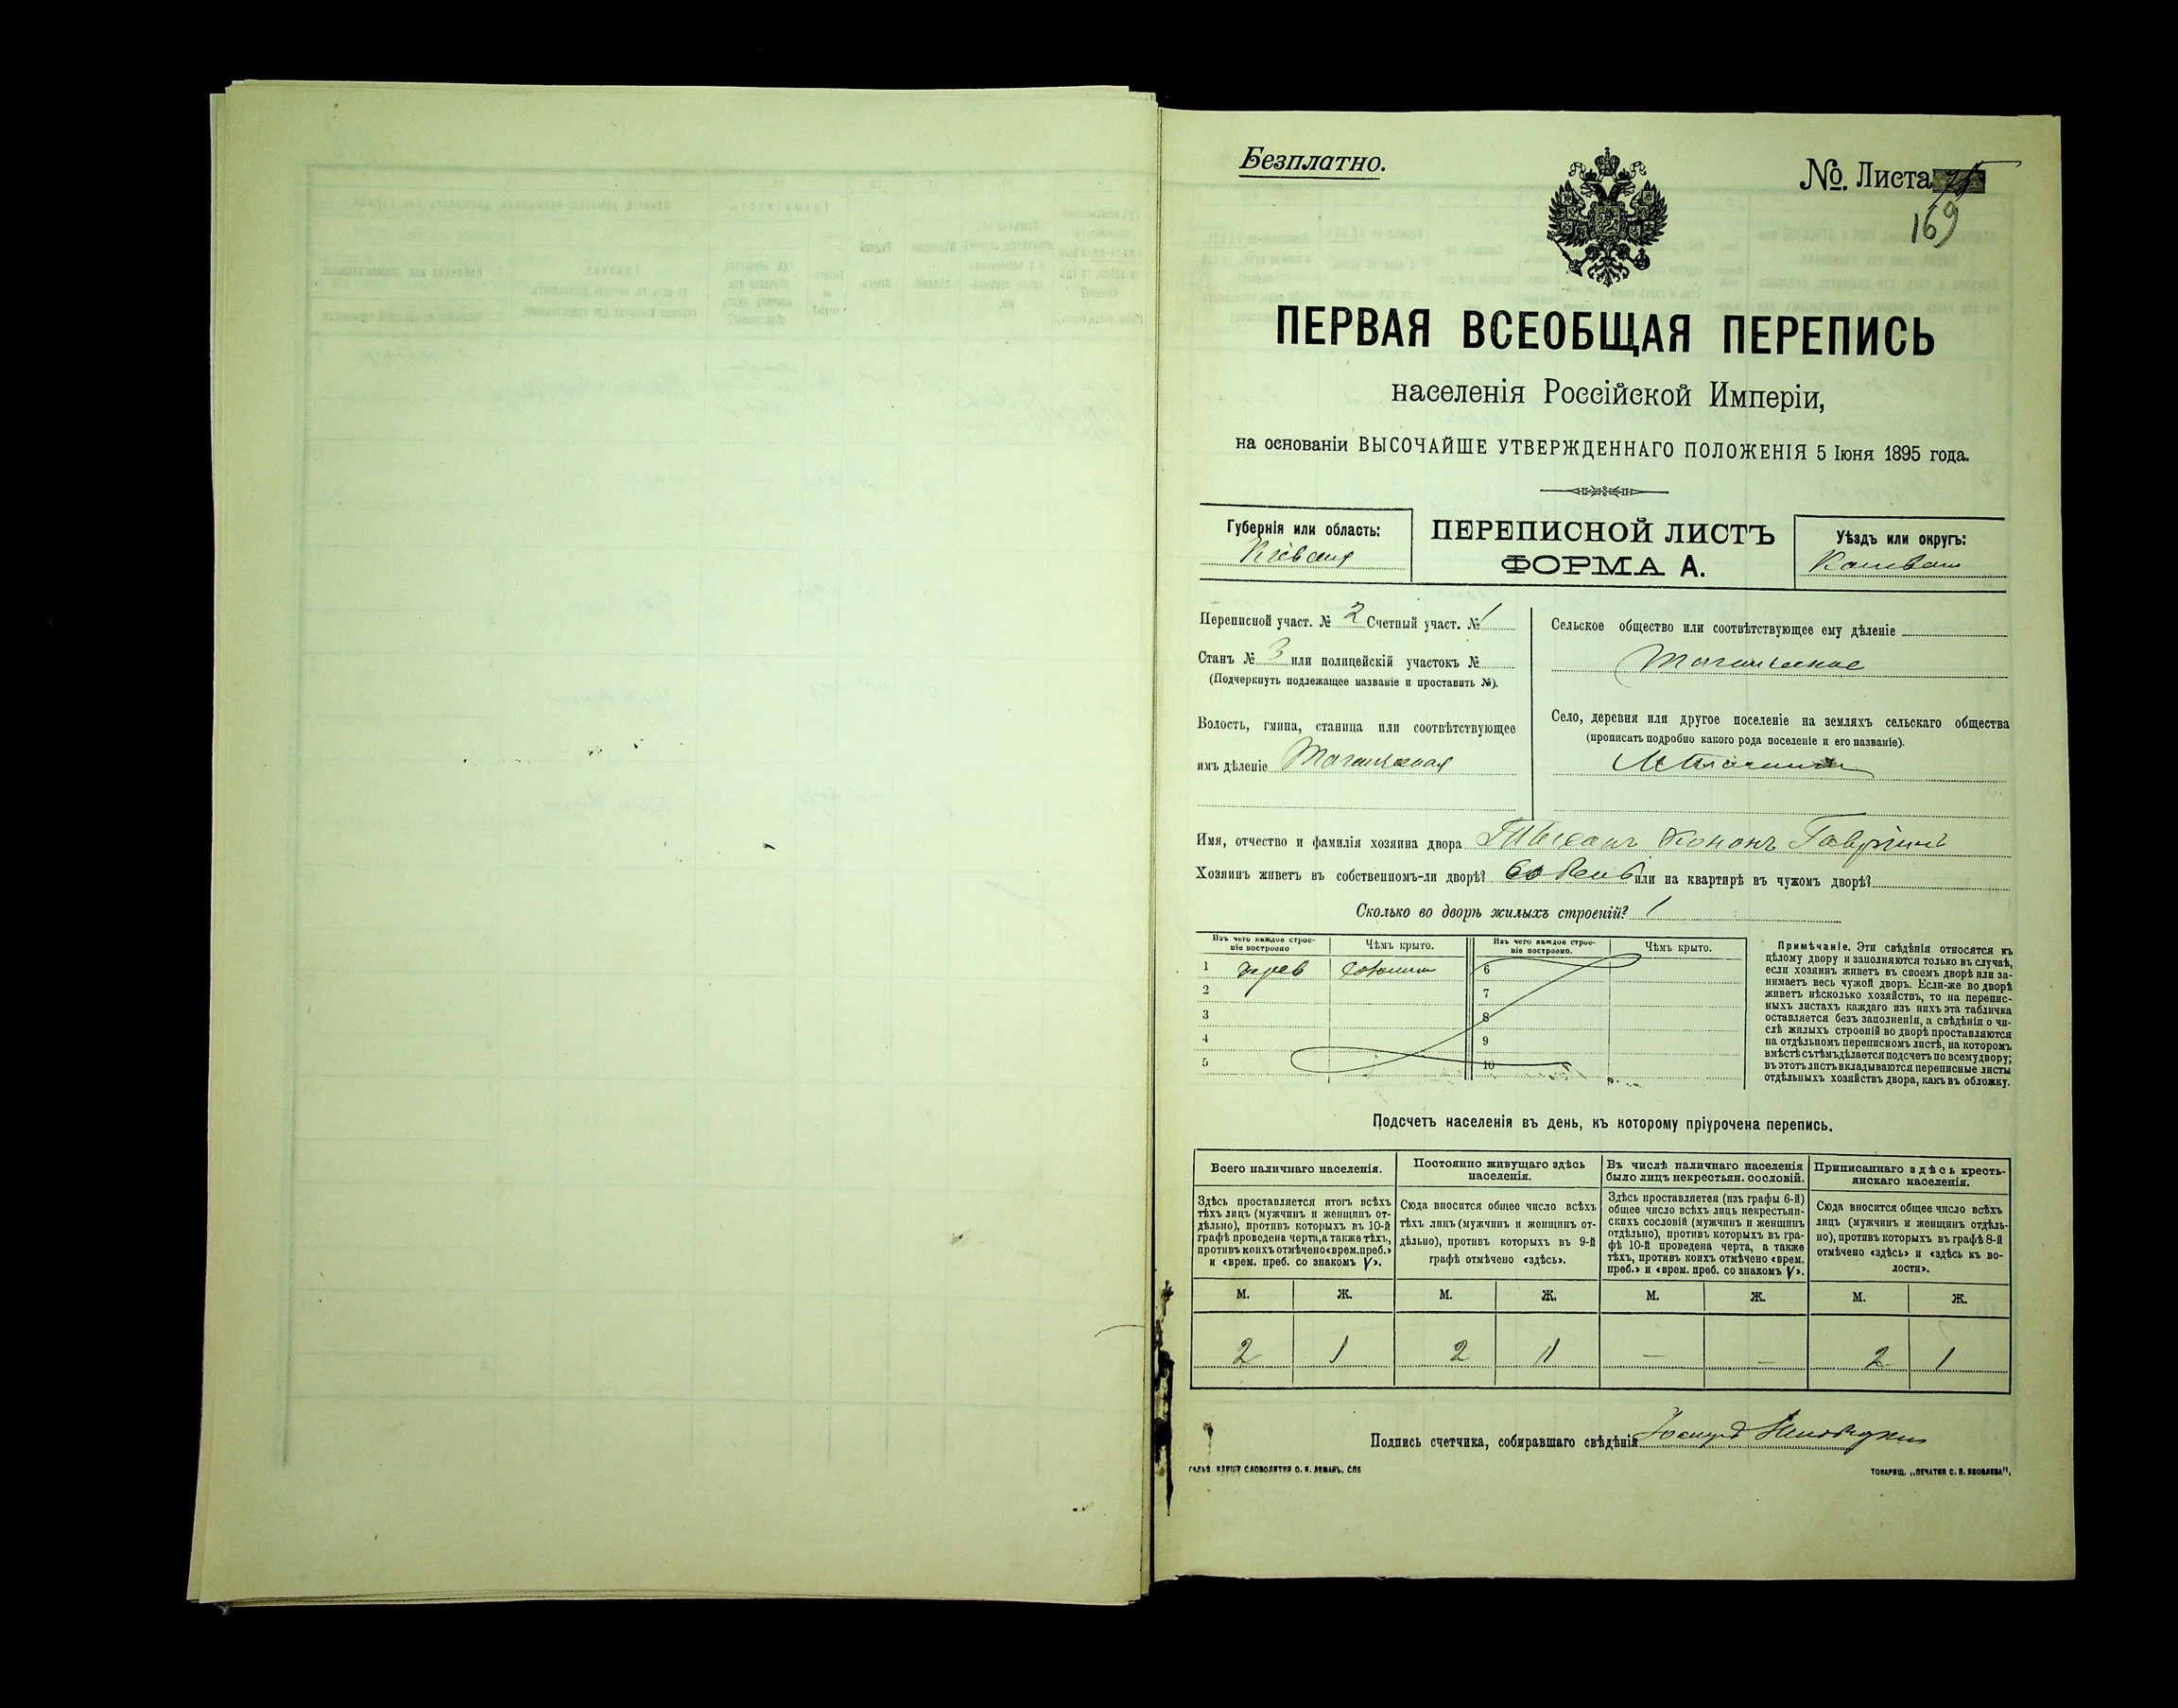 Безплатно.
№. Листа 75
169
ПЕРВАЯ ВСЕОБЩАЯ ПЕРЕПИСЬ
населенія Россійской Имперіи,
на основаніи ВЫСОЧАЙШЕ УТВЕРЖДЕННАГО ПОЛОЖЕНІЯ 5 Іюня 1895 года.
Губернія или область:
Кіевская
ПЕРЕПИСНОЙ ЛИСТЪ
ФОРМА А.
Уѣздъ или округъ:
Переписной участ. № 2 Счетный участ. № 1
Станъ № 3 или полицейскій участокъ №
(Подчеркнуть подлежащее названіе и проставить №).
Волость, гмина, станица или соотвѣтствующее
имъ дѣленіе Таганская
Сельское общество или соотвѣтствующее ему дѣленіе
Село, деревня или другое поселеніе на земляхъ сельскаго общества
(прописать подробно какого рода поселеніе и его названіе).
Имя, отчество и фамилія хозяина двора Кононъ
Хозяинъ живетъ въ собственномъ-ли дворѣ? или на квартирѣ въ чужомъ дворѣ?
Сколько во дворѣ жилыхъ строеній? 1
Изъ чего каждое строе-
ніе построено
Чѣмъ крыто.
Изъ чего каждое строе-
ніе построено.
Чѣмъ крыто.
1 дерев 6
2 7
3 8
4 9
5 10
Примѣчаніе. Эти свѣдѣнія относятся къ
цѣлому двору и заполняются только въ случаѣ,
если хозяинъ живетъ въ своемъ дворѣ или за-
нимаетъ весь чужой дворъ. Если-же во дворѣ
живетъ нѣсколько хозяйствъ, то на перепис-
ныхъ листахъ каждаго изъ нихъ эта табличка
оставляется безъ заполненія, а свѣдѣнія о чи-
слѣ жилыхъ строеній во дворѣ проставляются
на отдѣльномъ переписномъ листѣ, на которомъ
вмѣстѣ съ тѣмъ дѣлается подсчетъ по всему двору;
въ этотъ листъ вкладываются переписные листы
отдѣльныхъ хозяйствъ двора, какъ въ обложку.
Подсчетъ населенія въ день, къ которому пріурочена перепись.
Всего наличнаго населенія.
Здѣсь проставляется итогъ всѣхъ
тѣхъ лицъ (мужчинъ и женщинъ от-
дѣльно), противъ которыхъ въ 10-й
графѣ проведена черта, а также тѣхъ,
противъ коихъ отмѣчено «врем. преб.»
и «врем. преб. со знакомъ V».
Постоянно живущаго здѣсь
населенія.
Сюда вносится общее число всѣхъ
тѣхъ лицъ (мужчинъ и женщинъ от-
дѣльно), противъ которыхъ въ 9-й
графѣ отмѣчено «здѣсь».
Въ числѣ наличнаго населенія
было лицъ некрестьян. сословій.
Здѣсь проставляется (изъ графы 6-й)
общее число всѣхъ лицъ некрестьян-
скихъ сословій (мужчинъ и женщинъ
отдѣльно), противъ которыхъ въ гра-
фѣ 10-й проведена черта, а также
тѣхъ, противъ коихъ отмѣчено «врем.
преб.» и «врем. преб. со знакомъ V».
Приписаннаго здѣсь кресть-
янскаго населенія.
Сюда вносится общее число всѣхъ
лицъ (мужчинъ и женщинъ отдѣль-
но), противъ которыхъ въ графѣ 8-й
отмѣчено «здѣсь» и «здѣсь къ во-
лости».
М. Ж. М. Ж. М. Ж. М. Ж.
2 1 2 1 — — 2 1
Подпись счетчика, собиравшаго свѣдѣнія
ТОВАРИЩ. „ПЕЧАТНЯ С. П. ЯКОВЛЕВА“.